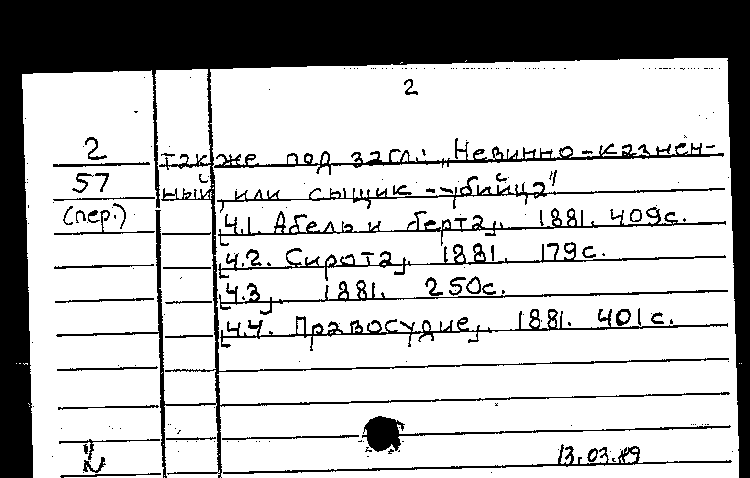 2
2 также под загл.: „Невинно-казнен-
57 ный, или сыщик-убийца"
(пер.) [Ч.1. Абель и Берта]. 1881. 409с.
[Ч.2. Сирота]. 1881. 179с.
[Ч.3]. 1881. 250с.
[Ч.4. Правосудие]. 1881. 401с.
13.03.89